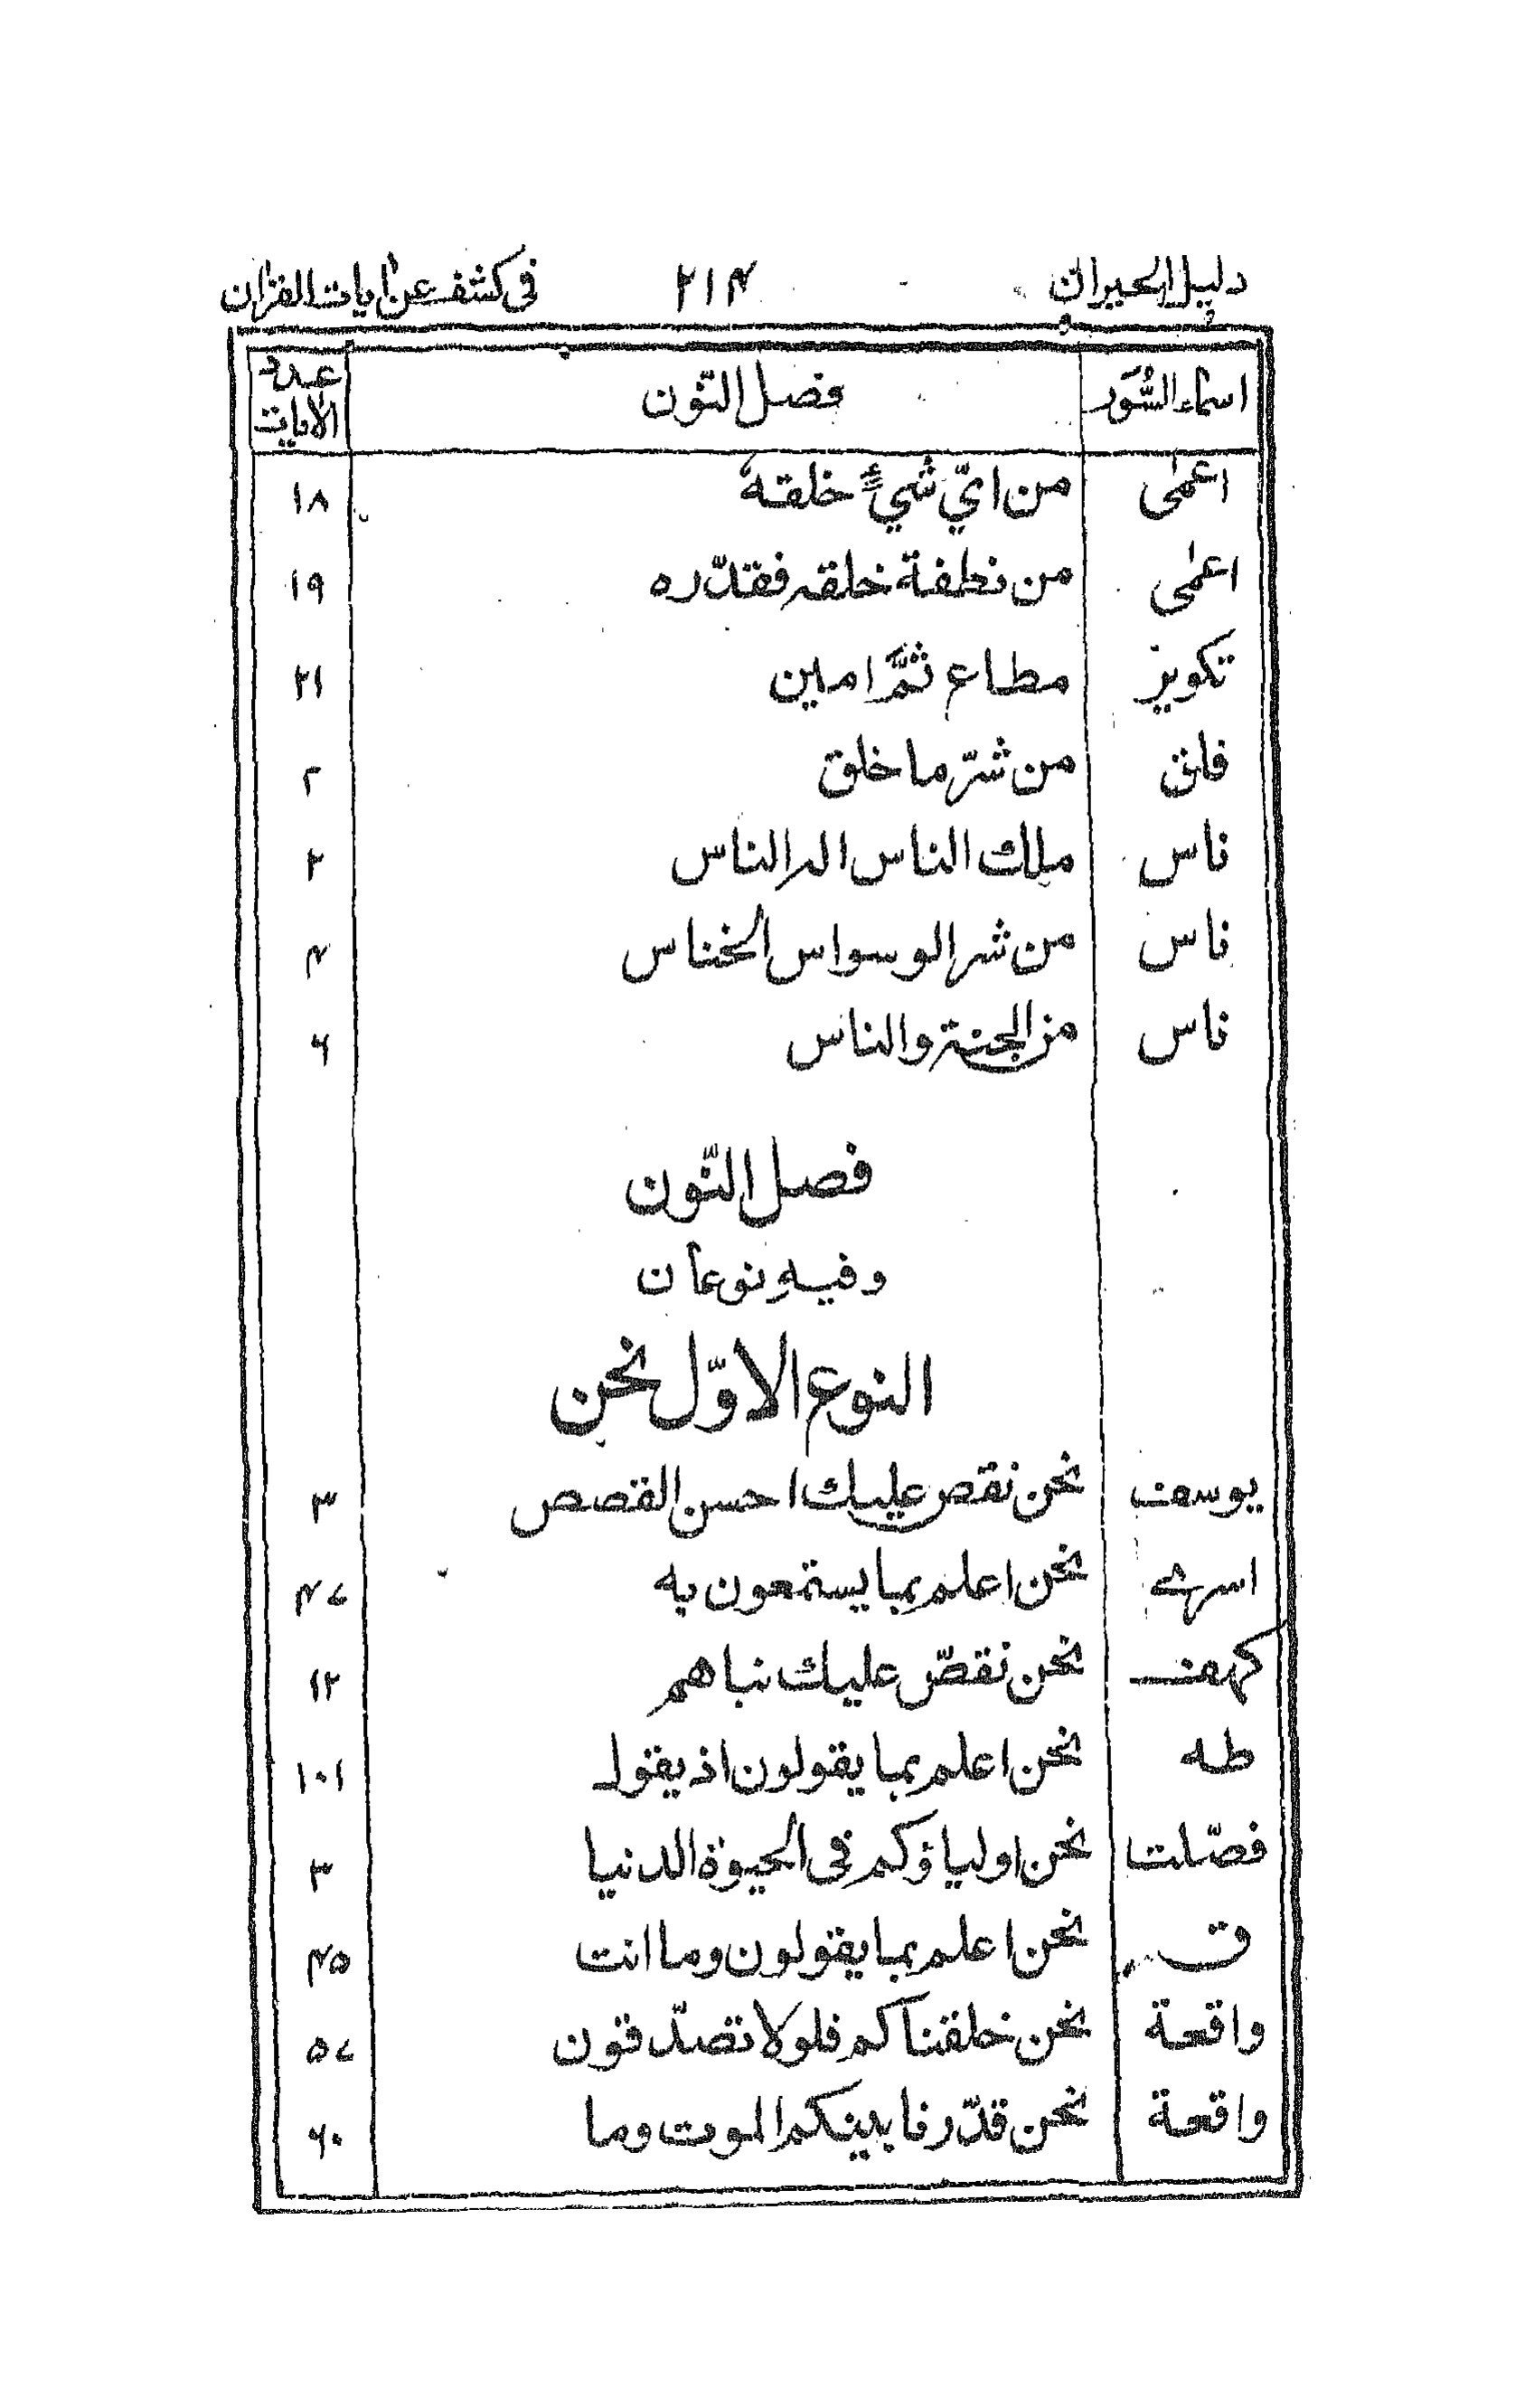 دليل الحيران ٢١٤ فى كشف عن ايات القران
اسماء السُّوَر فصل النّون عدد الايات
اعمٰى من ايّ شيءٍ خلقهٗ ١٨
اعمٰى من نطفة خلقه فقدّره ١٩
تكوير مطاع ثَمَّ امين ٢١
فلق من شرّ ما خلق ٢
ناس ملك الناس اله الناس ٢
ناس من شر الوسواس الخناس ٤
ناس من الجنة والناس ٦
فصل النّون
وفيهِ نوعان
النوع الاوّل نحن
يوسف نحن نقص عليك احسن القصص ٣
اسرے نحن اعلم بما يستمعون به ٤٧
كهف نحن نقصّ عليك نباهم ١٢
طه نحن اعلم بما يقولون اذ يقول ١٠١
فصّلت نحن اولياؤكم فى الحيوة الدنيا ٣
ق نحن اعلم بما يقولون وما انت ٤٥
واقعة نحن خلقناكم فلولا تصدّقون ٥٧
واقعة نحن قدّرنا بينكم الموت وما ٦٠